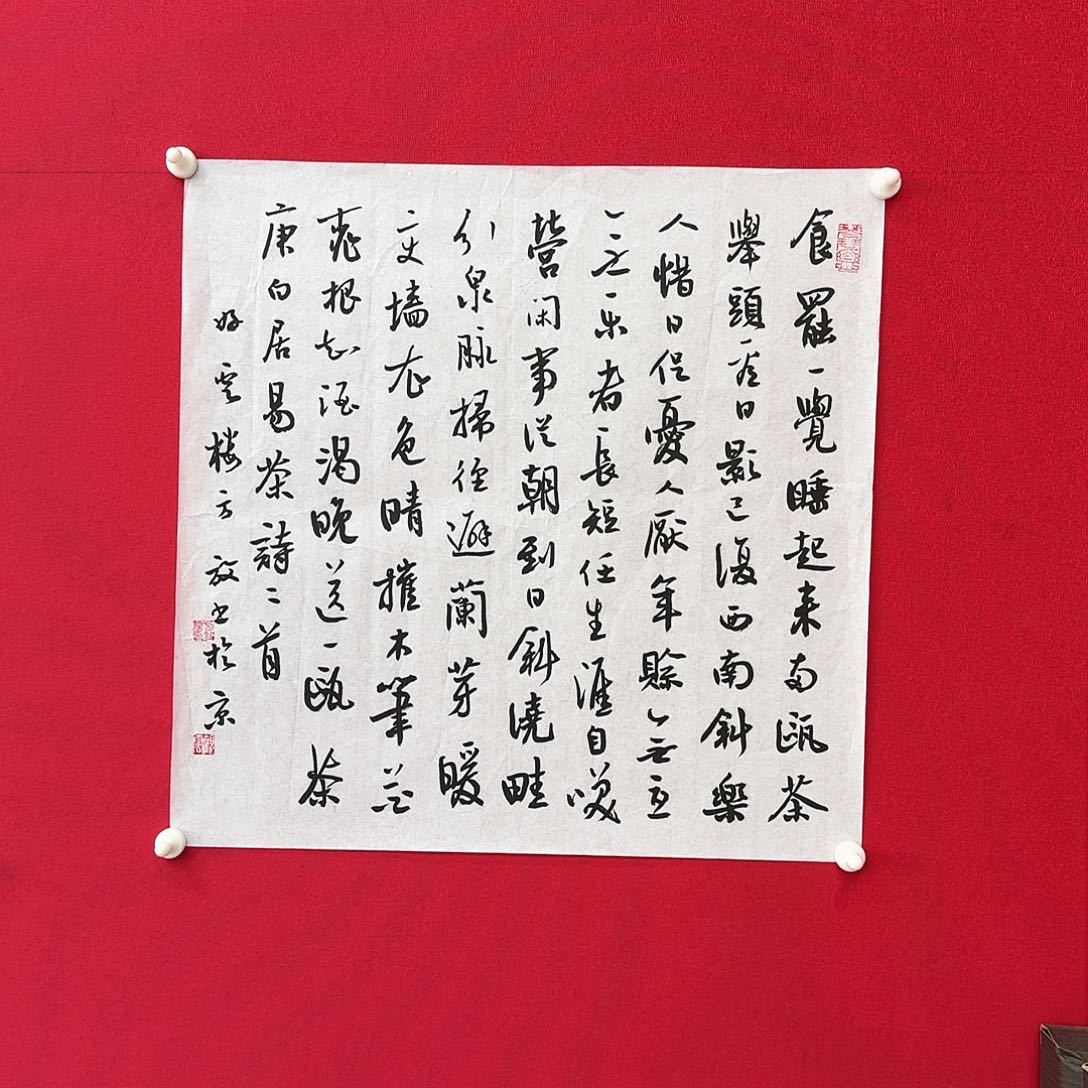 食罷一覺睡起来两甌茶
舉頭看日影已復西南斜樂
人惜日促憂人厭年賒无憂
无乐者長短任生涯自咲
營闲事从朝到日斜澆畦
引泉脈掃徑避蘭芽暖
变墙衣色晴摧木筆花
桃根知酒渴晚送一甌茶
唐白居易茶詩二首
雲楼方放书於京